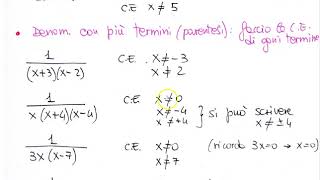 C.E. x ≠ 5
• Denom. con più termini (parentesi): faccio le C.E. di ogni termine
1/((x+3)(x-2)) C.E. x ≠ -3
x ≠ 2
1/(x(x+4)(x-4)) C.E. x ≠ 0
x ≠ -4
x ≠ +4 } si può scrivere x ≠ ±4
1/(3x(x-7)) C.E. x ≠ 0 (ricorda 3x=0 → x=0)
x ≠ 7